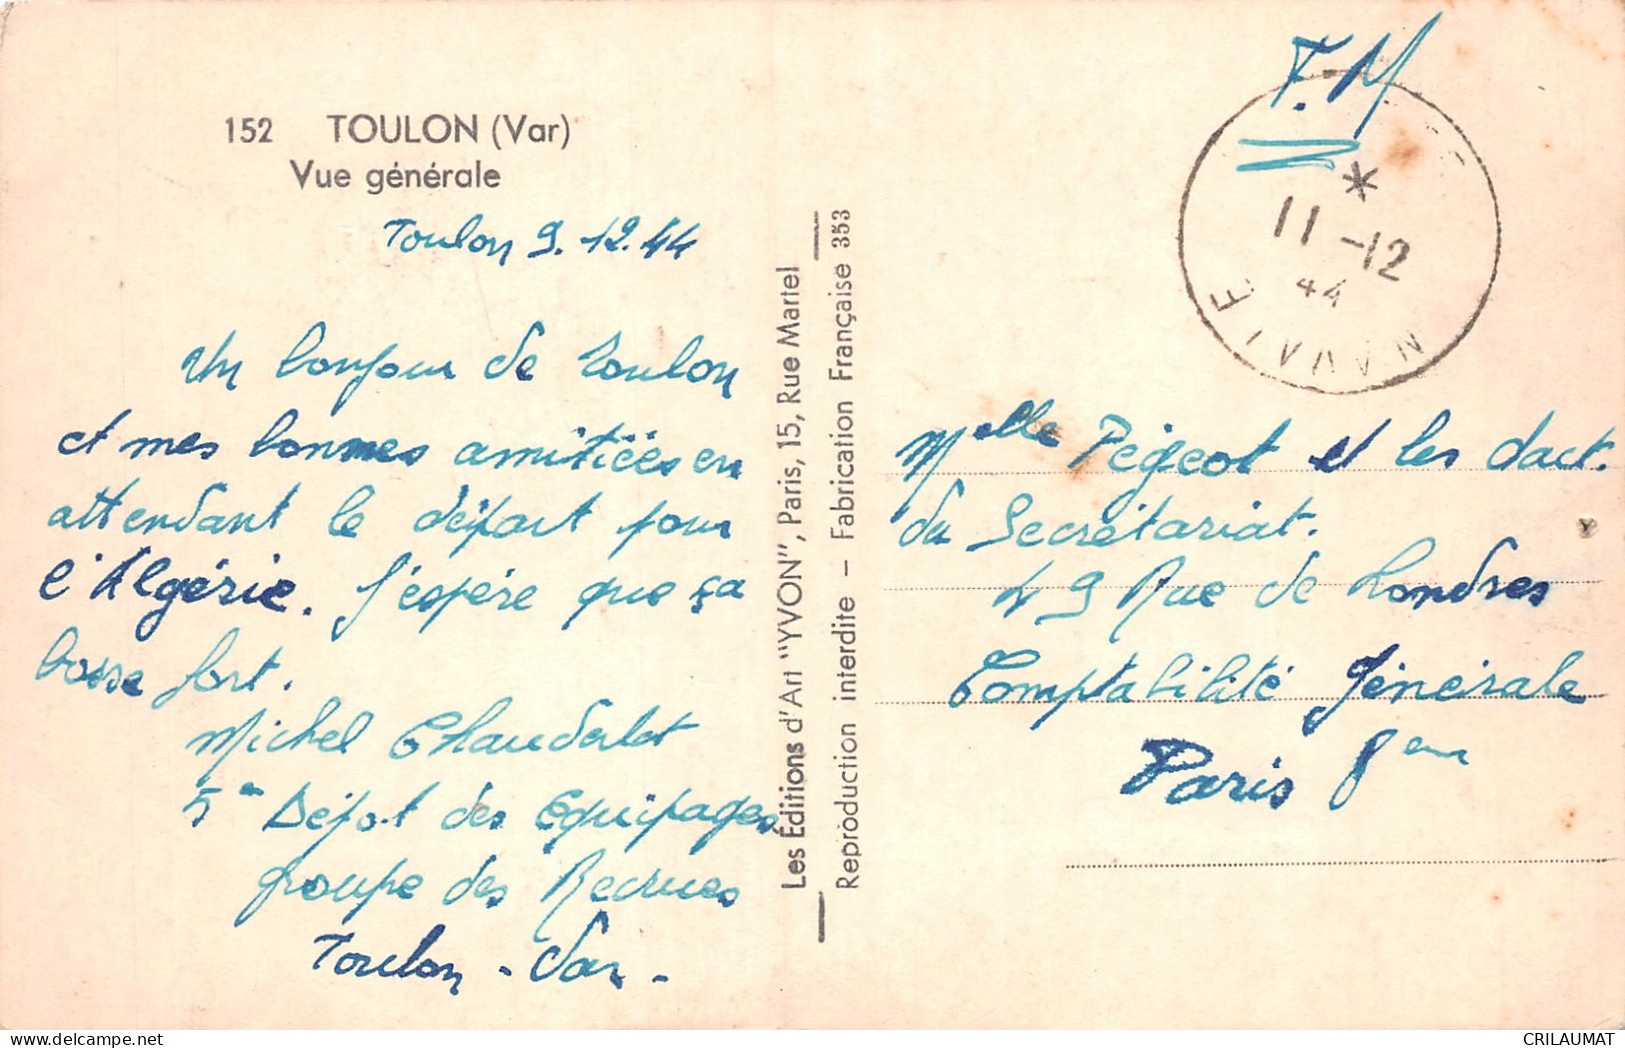 152 TOULON (Var)
Vue générale
Toulon 9.12.44
Un bonjour de Toulon
et mes bonnes amitiées en
attendant le départ pour
l'Algérie. J'espère que ça
bosse fort.
Michel
5e Dépot des Equipages
groupe des Recrues
Toulon - Var -
Les Éditions d'Art "YVON", Paris, 15, Rue Martel
Reproduction interdite — Fabrication Française 353
F.M
*
11 -12
44
NAVALE
Melle Pégeot et les dact.
du Secrétariat.
49 Rue de Londres
Comptabilité Générale
Paris 8em
CRILAUMAT